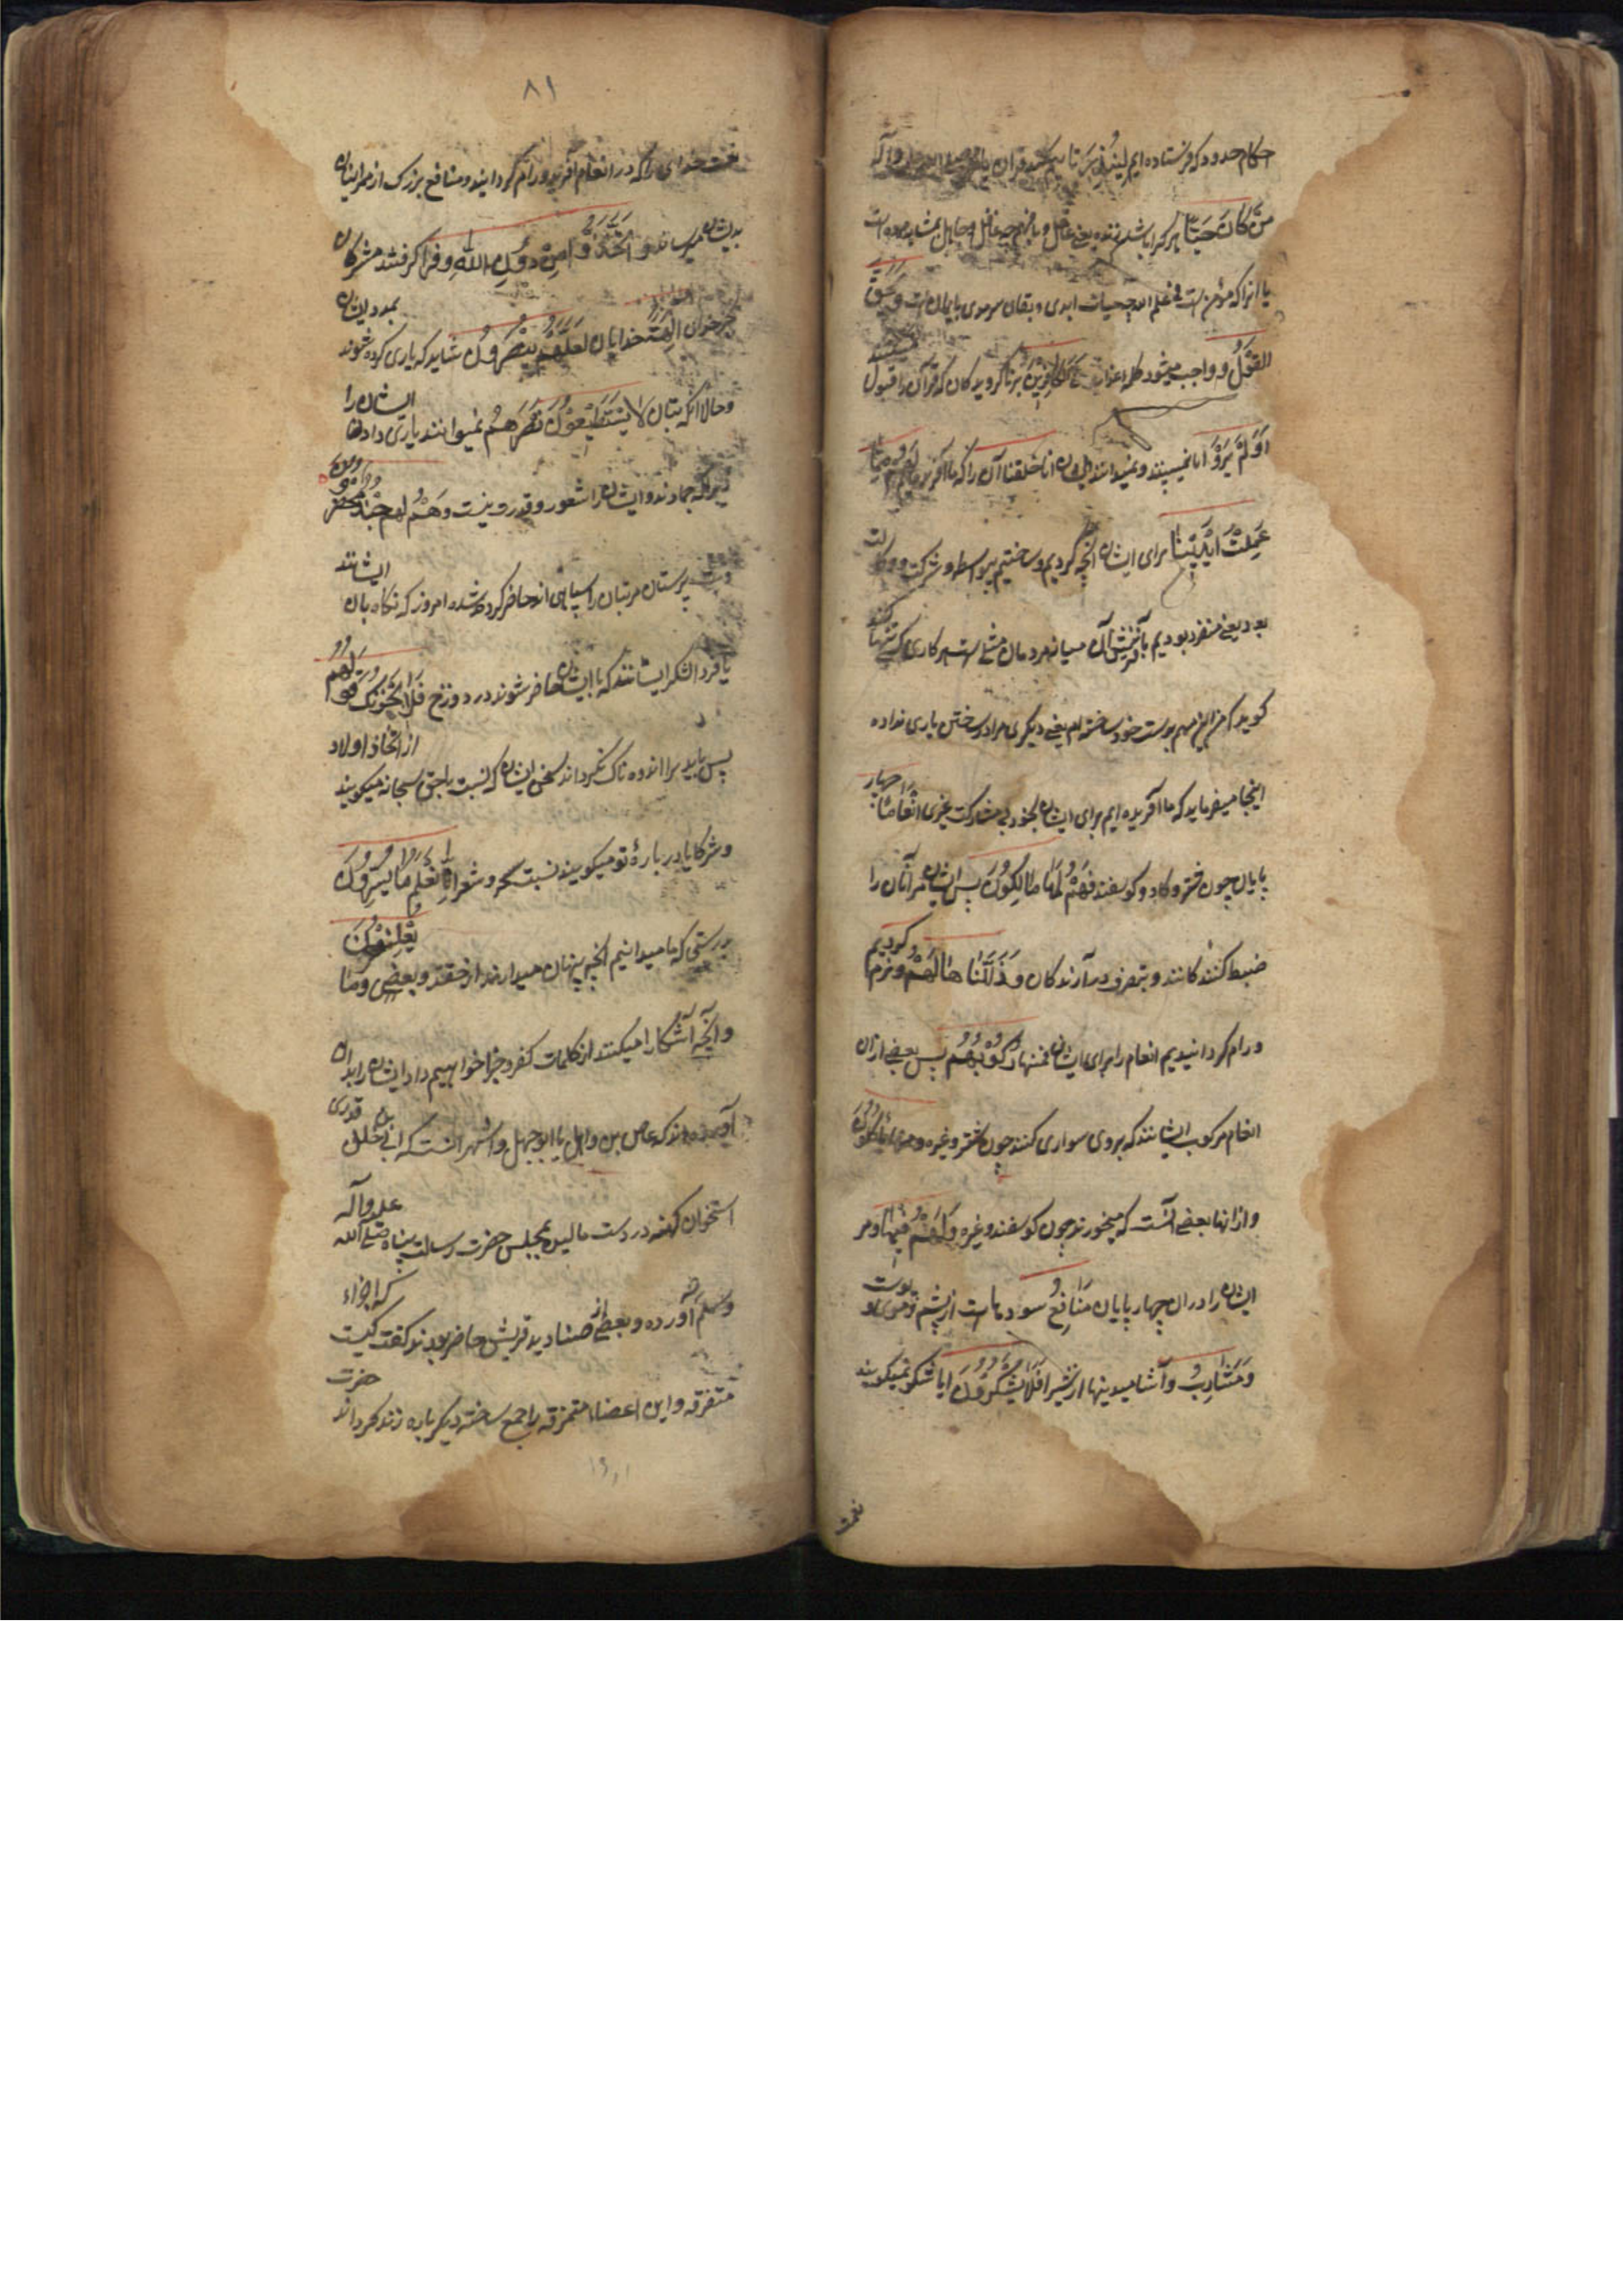 احکام حدود که فرستاده ایم لِیُنذِرَ تا بیم کند قرآن یا محمد صلی الله علیه و آله
مَنْ كَانَ حَيًّا هر که را باشد زنده یعنی عاقل و بافهم چه غافل و جاهل بمثابه مرده است
یا انرا که مؤمن است فی علم الله چه حیات ابدی و بقای سرمدی بایمانست وَيَحِقَّ
الْقَوْلُ و واجب میشود کلمه عذاب عَلَى الْكَافِرِينَ بر ناگرویدکان که قرآن را قبول
نمیکنند
أَوَلَمْ يَرَوْا ایا نمی‌بینند و نمیدانند أَنَّا خَلَقْنَا آن را که ما آفریدیم لَهُم مِمَّا
عَمِلَتْ أَيْدِينَا برای ایشان آنچه کردیم و ساختیم بیواسطه و شرکت و وکالت
بود یعنی منفرد بودیم بآفرینش آن میان مردمان مثلی است هر کاری که تنها
کنند
گوید که من این مهم بدست خود ساخته‌ام یعنی دیگری مرا در ساختن یاری نداده
اینجا میفرماید که ما آفریده ایم برای ایشان بخود بی مشارکت غیری أَنْعَامًا چهار
پایان چون شتر و کاو و کوسفند فَهُمْ لَهَا مَالِكُونَ پس ایشان مر آنان را
ضبط کنندکانند و بتصرف درآرندکان وَذَلَّلْنَاهَا لَهُمْ و نرم کردیم
و رام کردانیدیم انعام را برای ایشان فَمِنْهَا رَكُوبُهُمْ پس بعضی ازان
انعام مرکوب ایشانند که بروی سواری کنند چون شتر و غیره وَمِنْهَا يَأْكُلُونَ
و از انها بعضی آنست که میخورند چون کوسفند و غیره وَلَهُمْ فِيهَا و مر
ایشان را در ان چهار پایان مَنَافِعُ سودهاست از پشم و موی و پوست
وَمَشَارِبُ و آشامیدنیها از شیر أَفَلَا يَشْكُرُونَ ایا شکر نمیکویند
نعمت
۸۱
نعمت خدای را که در انعام آفرید و رام کردانید و منافع بزرک از ممر اینان
بدیشان میرساند وَاتَّخَذُوا مِنْ دُونِ اللَّهِ و فرا کرفتند مشرکان
بجز خدای آلِهَةً خدایان لَعَلَّهُمْ يُنْصَرُونَ شاید که یاری کرده شوند
بمدد ایشان
و حالا انکه بتان لَا يَسْتَطِيعُونَ نَصْرَهُمْ نمیتوانند یاری دادن
ایشان را
زیرا که جمادند و ایشان را شعور و قدرت نیست وَهُمْ لَهُمْ جُنْدٌ مُحْضَرُونَ
و بت پرستان مر بتان را سپاهی اند حاضر کرده شده امروز که نکاه بان
ایشانند
یا فردا لشکر ایشانند که با ایشان حاضر شوند در دوزخ فَلَا يَحْزُنْكَ قَوْلُهُمْ
پس باید ترا اندوه ناک نکرداند سخن ایشان که نسبت با حق سبحانه میکویند
از اتخاذ اولاد
و شرکا یا در بارهٔ تو میکویند نسبت سحر و شعر إِنَّا نَعْلَمُ مَا يُسِرُّونَ
بدرستی که ما میدانیم آنچه پنهان میدارند از حقد و بعض وَمَا
يُعْلِنُونَ
و آنچه آشکارا میکنند از کلمات کفر و جزا خواهیم داد ایشان را بدان
آورده اند که عاص بن وایل یا ابو جهل و اشهر آنست که ابی بن خلف قدری
استخوان کهنه در دست مالیده بمجلس حضرت رسالت پناه صلی الله
علیه وآله
وسلم آورده و بعضی از صنادید قریش حاضر بودند کفت کیست
که اجزاء
متفرقه و این اعضاء متمزقه را جمع ساخته دیکر باره زنده کرداند
حضرت